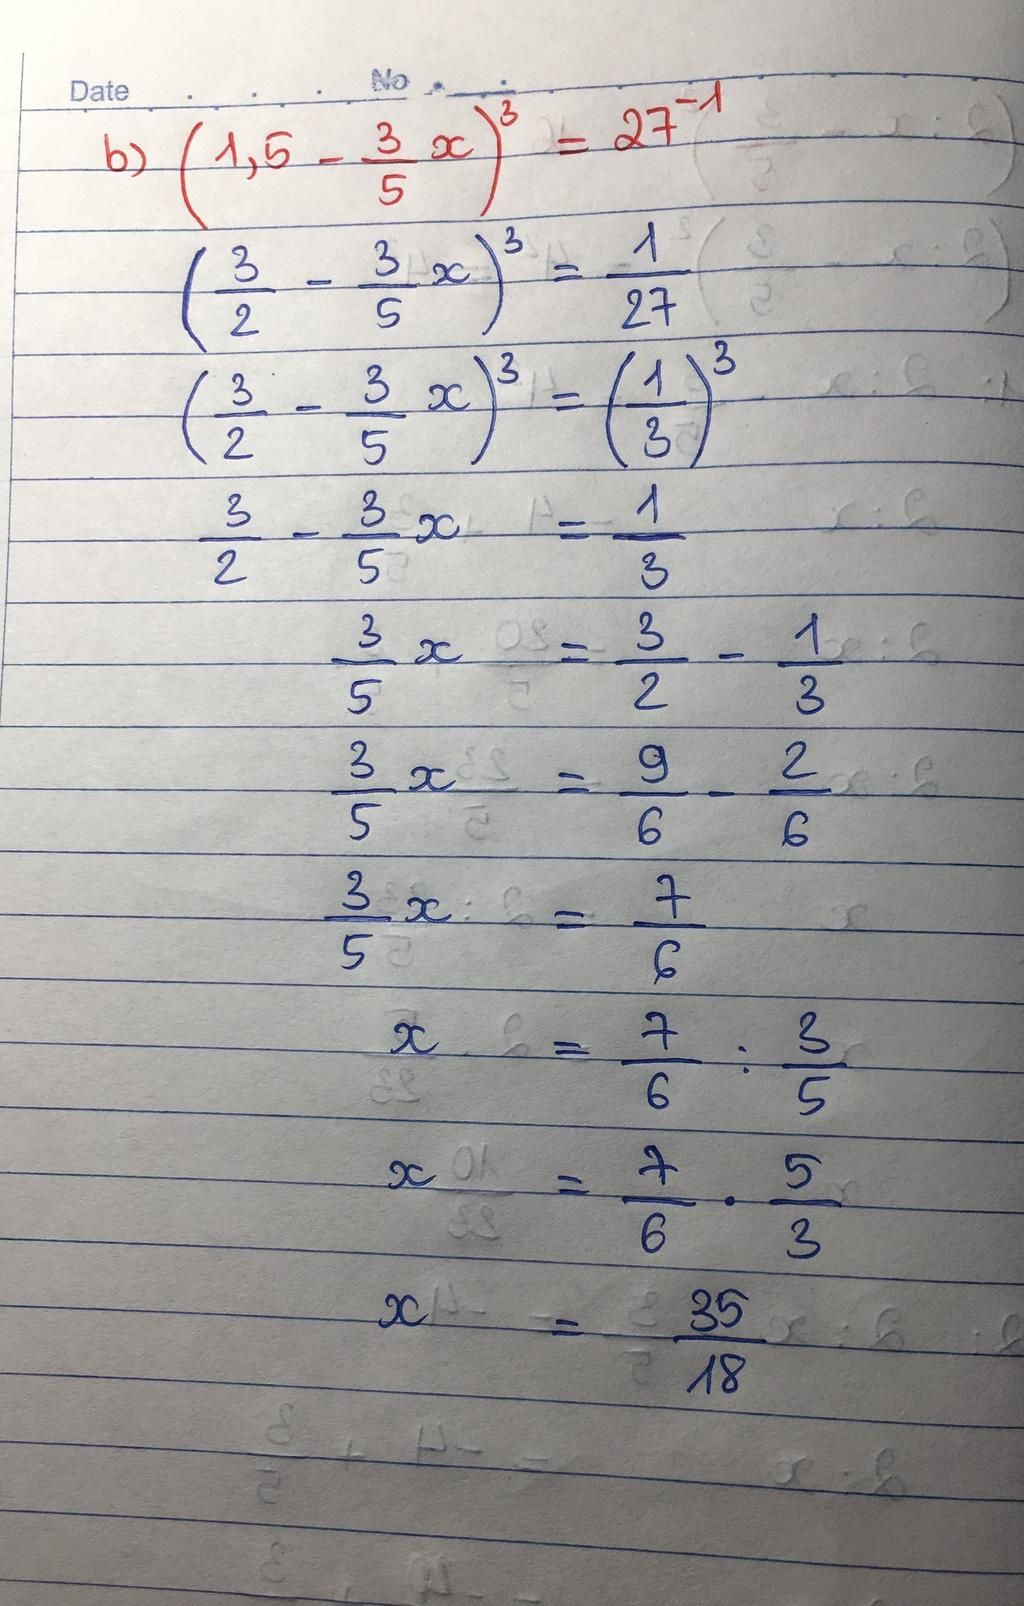 Date No
b) (1,5 - 3/5 x)³ = 27⁻¹
(3/2 - 3/5 x)³ = 1/27
(3/2 - 3/5 x)³ = (1/3)³
3/2 - 3/5 x = 1/3
3/5 x = 3/2 - 1/3
3/5 x = 9/6 - 2/6
3/5 x = 7/6
x = 7/6 : 3/5
x = 7/6 . 5/3
x = 35/18